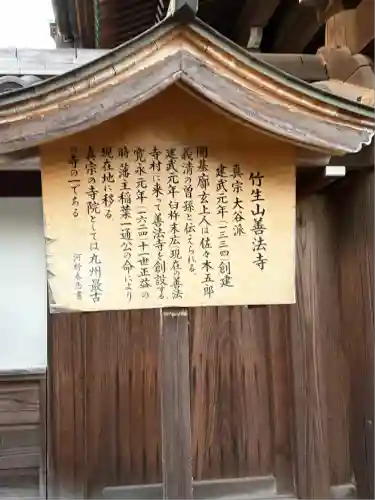 竹生山善法寺
真宗 大谷派
建武元年(一三三四)創建
開基廓玄上人は佐々木五郎
義清の曽孫と伝えられる。
建武元年臼杵末広現在の善法
寺村に来って善法寺を創設する
寛永元年(一六二四)十一世正益の
時藩主稲葉一通公の命により
現在地に移る。
真宗の寺院としては九州最古
の寺の一である